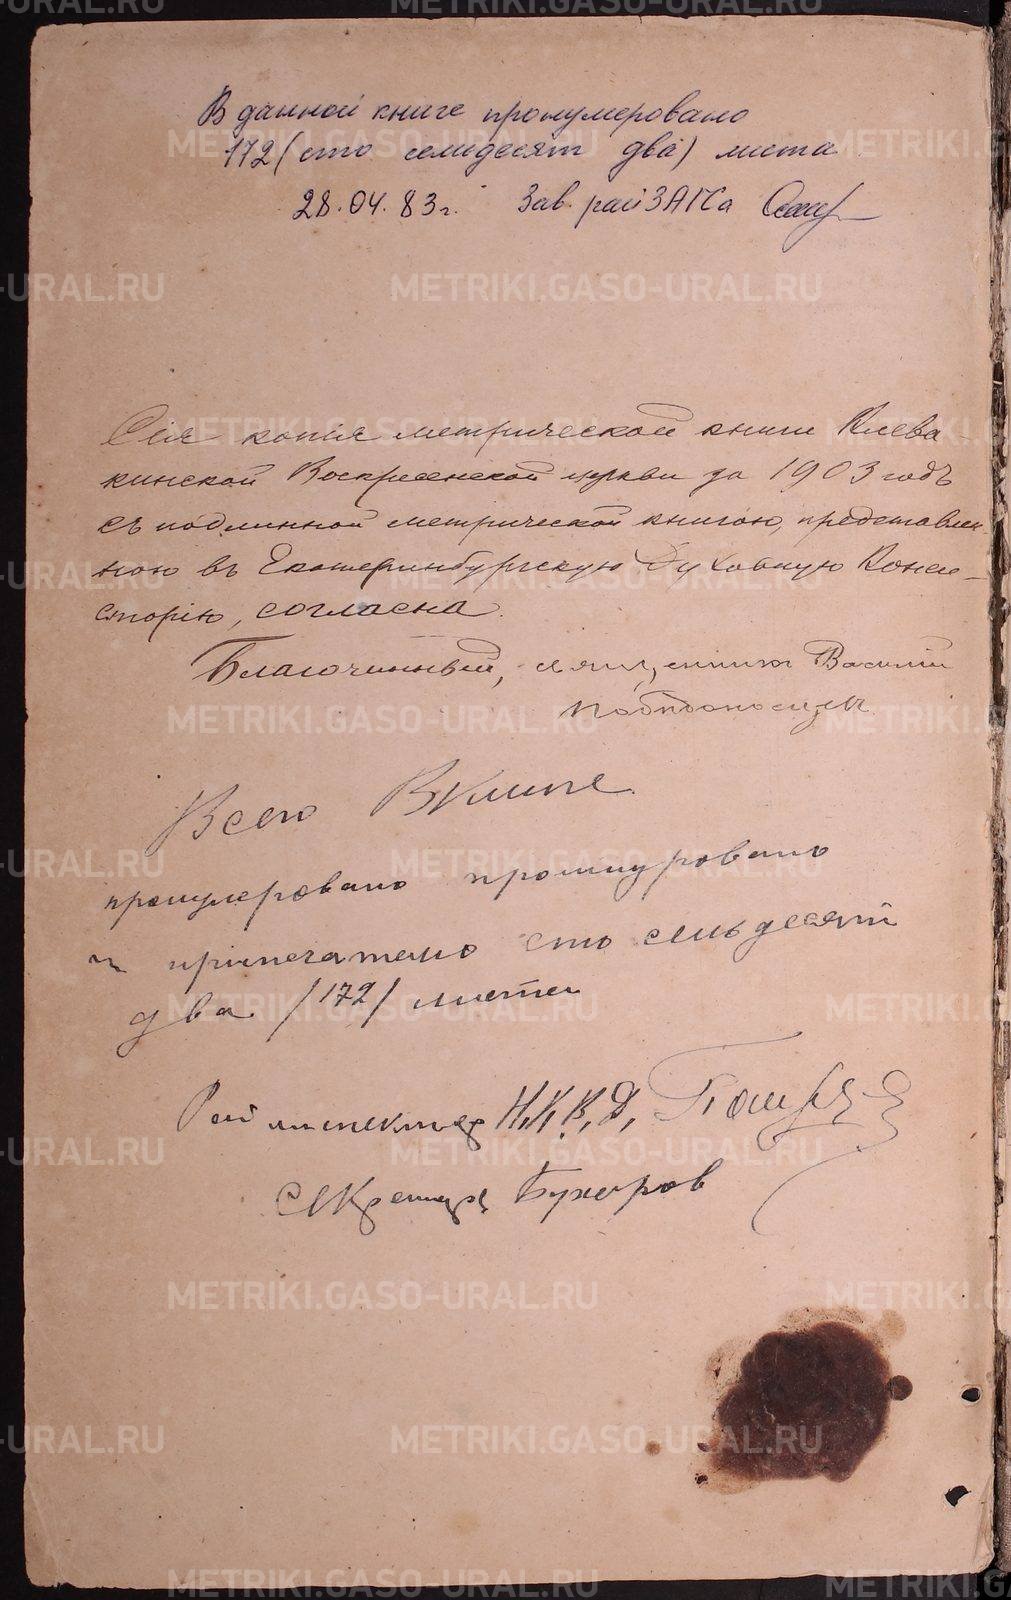 В данной книге пронумеровано
172 (сто семидесят два) листа
28.04.83г. Зав. райЗАГСа
Сія копія метрической книги Клева-
кинской Воскресенской церкви за 1903 годъ
съ подлинной метрической книгою, представлен-
ною въ Екатеринбургскую Духовную Конси-
сторію, согласна.
Благочинный, священникъ Василій
Побѣдоносцевъ
Всего В книге
пронумеровано прошнуровано
и припечатано сто семьдесят
два /172/ листа
Рай инспектор Н.К.В.Д.
Секретарь Бухаров
METRIKI.GASO-URAL.RU